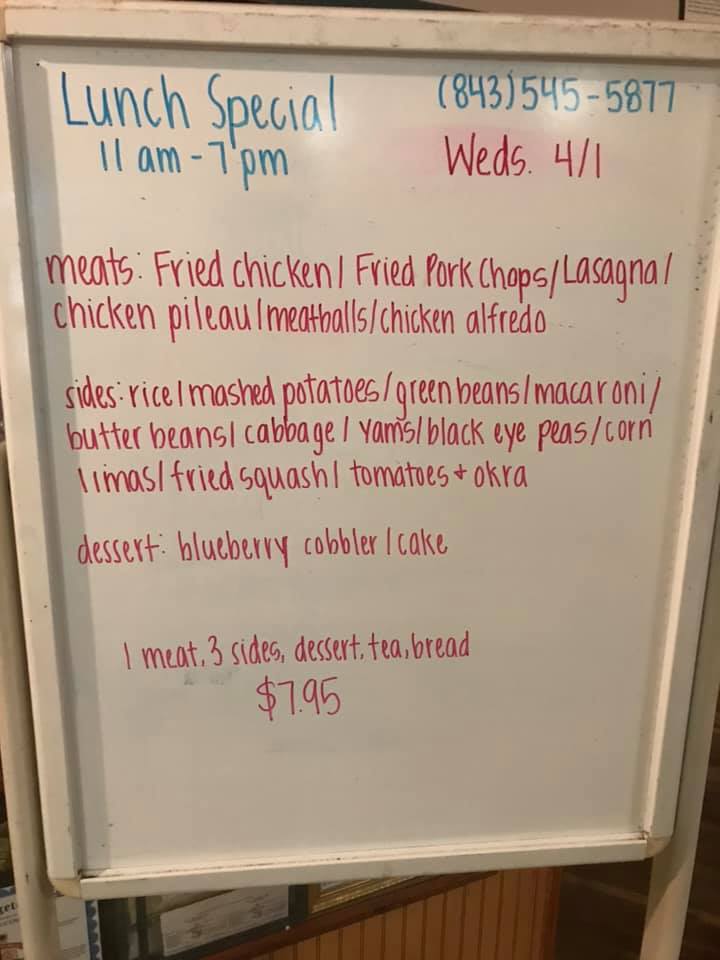 Lunch Special (843)545-5877
11 am - 7 pm Weds. 4/1
meats: Fried chicken/ Fried Pork Chops/Lasagna/
chicken pileau/meatballs/chicken alfredo
sides: rice/mashed potatoes/green beans/macaroni/
butter beans/ cabbage/ yams/black eye peas/corn
limas/fried squash/ tomatoes + okra
dessert: blueberry cobbler/cake
1 meat, 3 sides, dessert, tea, bread
$7.95